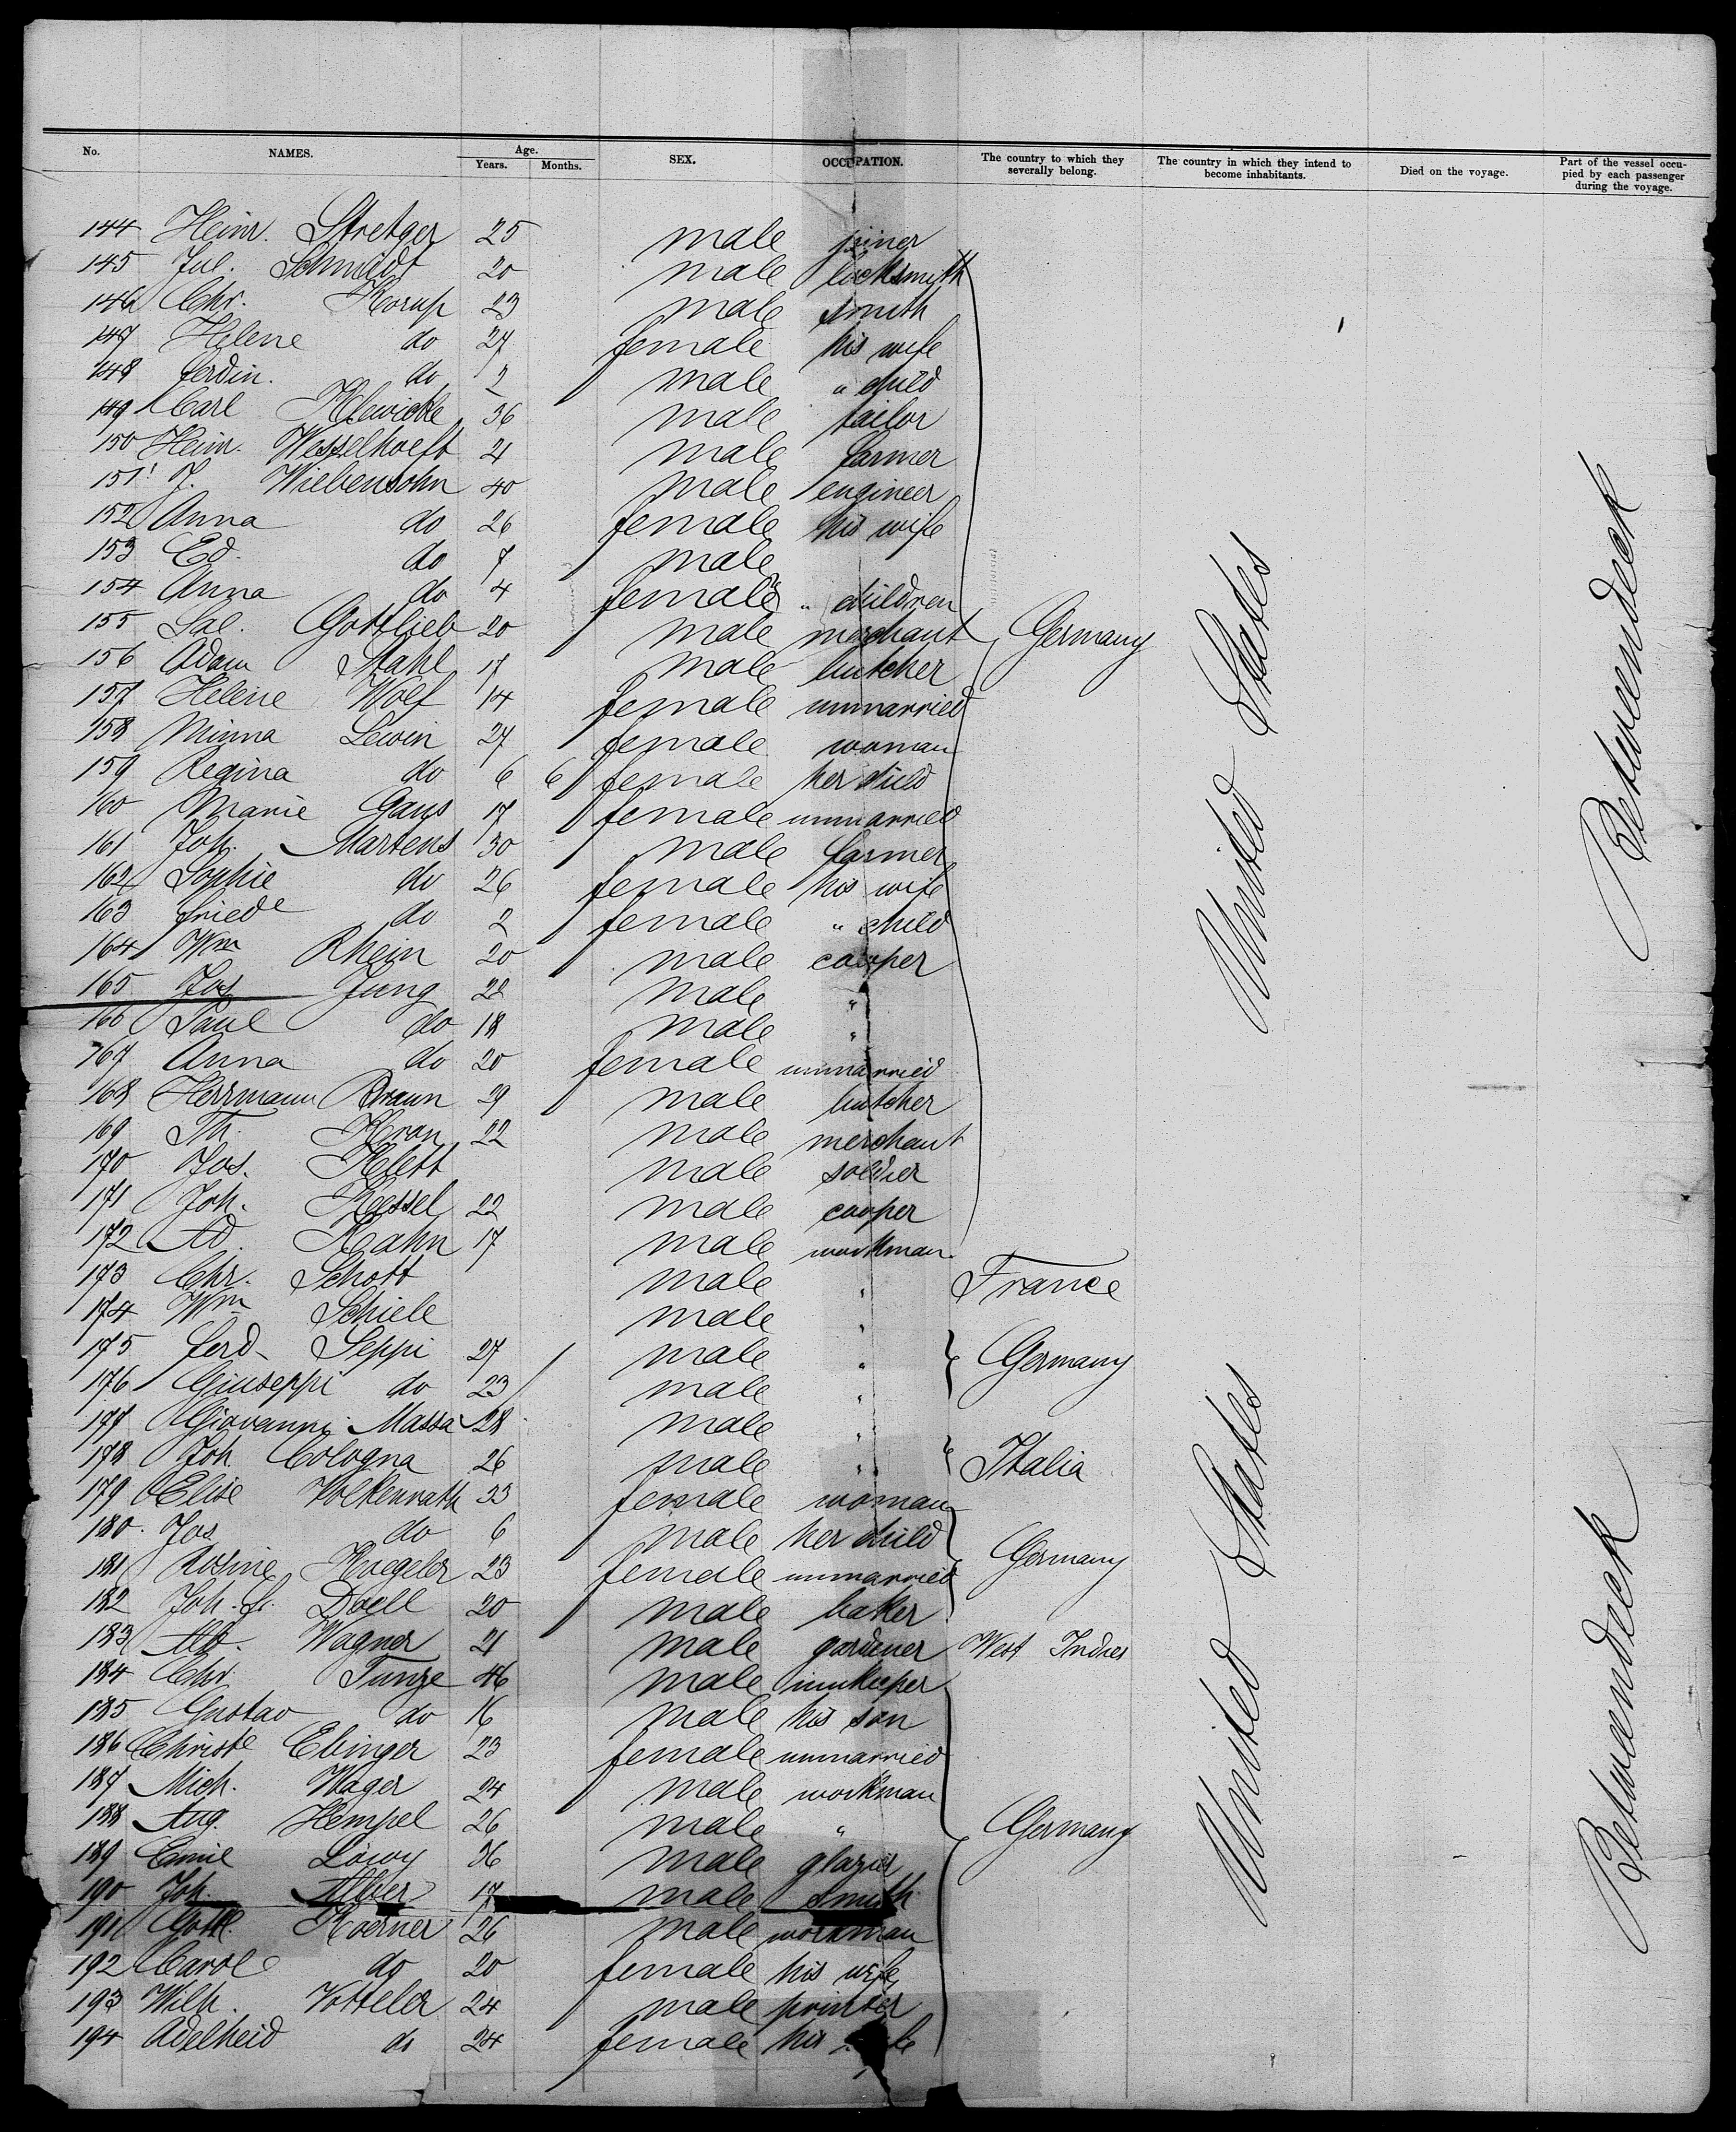 No. NAMES. Age. Years. Months. SEX. OCCUPATION. The country to which they severally belong. The country in which they intend to become inhabitants. Died on the voyage. Part of the vessel occupied by each passenger during the voyage.
144 Heinr. Stretger 25 male joiner
145 Jul. Schmidt 20 male locksmith
146 Chr. Korup 23 male smith
147 Helene do 27 female his wife
148 Ferdin. do 2 male " child
149 Carl Klewicke 36 male tailor
150 Heinr. Wesselhoeft 21 male farmer
151 J. Wiebensohn 40 male engineer
152 Anna do 26 female his wife
153 Ed. do 7 male
154 Anna do 4 female " children
155 Sal. Gottlieb 20 male merchant Germany
156 Adam Stahl 17 male butcher
157 Helene Wolf 14 female unmarried
158 Minna Lewin 27 female woman
159 Regina do 6 6 female her child
160 Marie Gans 17 female unmarried
161 Joh. Martens 30 male farmer
162 Sophie do 26 female his wife
163 Friede do 2 female " child
164 Wm Rhein 20 male cooper
165 Jos Jung 28 male "
166 Paul do 18 male "
167 Anna do 20 female unmarried
168 Herrmann Braun 29 male butcher
169 Th. Kran 22 male merchant
170 Jos. Klett male soldier
171 Joh. Kessel 22 male cooper
172 Ad. Kahn 17 male workman
173 Chr. Schott male " France
174 Wm Schiele male "
175 Ferd. Seppi 27 male " Germany
176 Giuseppi do 23 male "
177 Giovanni Massa 28 male "
178 Joh Cologna 26 male " Italia
179 Elise Volkenrath 33 female woman
180. Jos do 6 male her child
181 Rosine Kuegeler 23 female unmarried Germany
182 Joh. Fr. Doell 20 male baker
183 Alb. Wagner 21 male gardener West Indies
184 Chr. Tunze 46 male innkeeper
185 Gustav do 16 male his son
186 Christe Ebinger 23 female unmarried
187 Mich. Wager 24 male workman
188 Aug. Hempel 26 male " Germany
189 Emil Löwy 36 male glazier
190 Joh. Alber 17 male smith
191 Gottl. Koerner 26 male workman
192 Carole do 20 female his wife
193 Wilh. Votteler 24 male printer
194 Adelheid do 24 female his wife
United States
Betweendeck
United States
Betweendeck